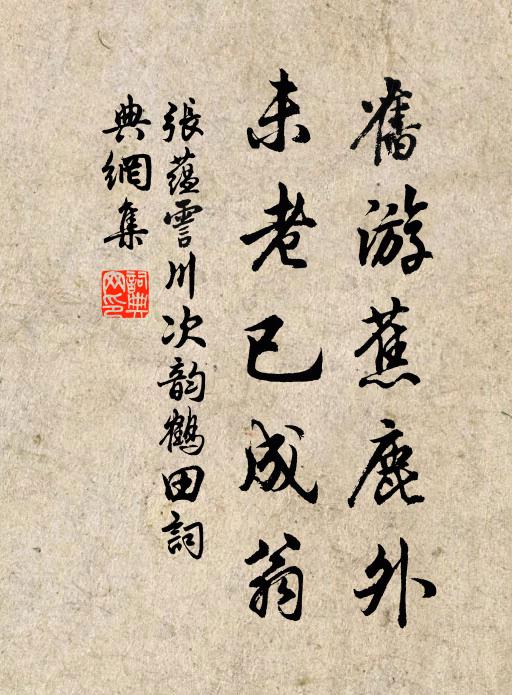 舊游蕉鹿外
未老已成翁
張蘊霅川次韵鶴田詞
典網集
詞典網印